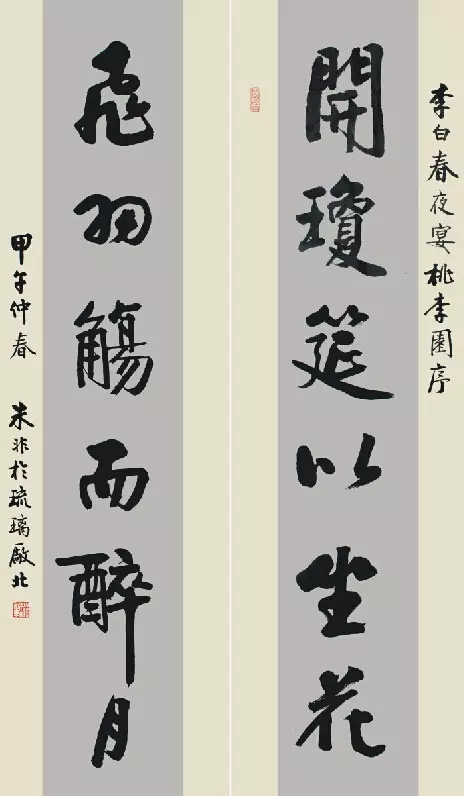 李白春夜宴桃李園序
開瓊筵以坐花
飛羽觴而醉月
甲午仲春 朱非於琉璃廠北